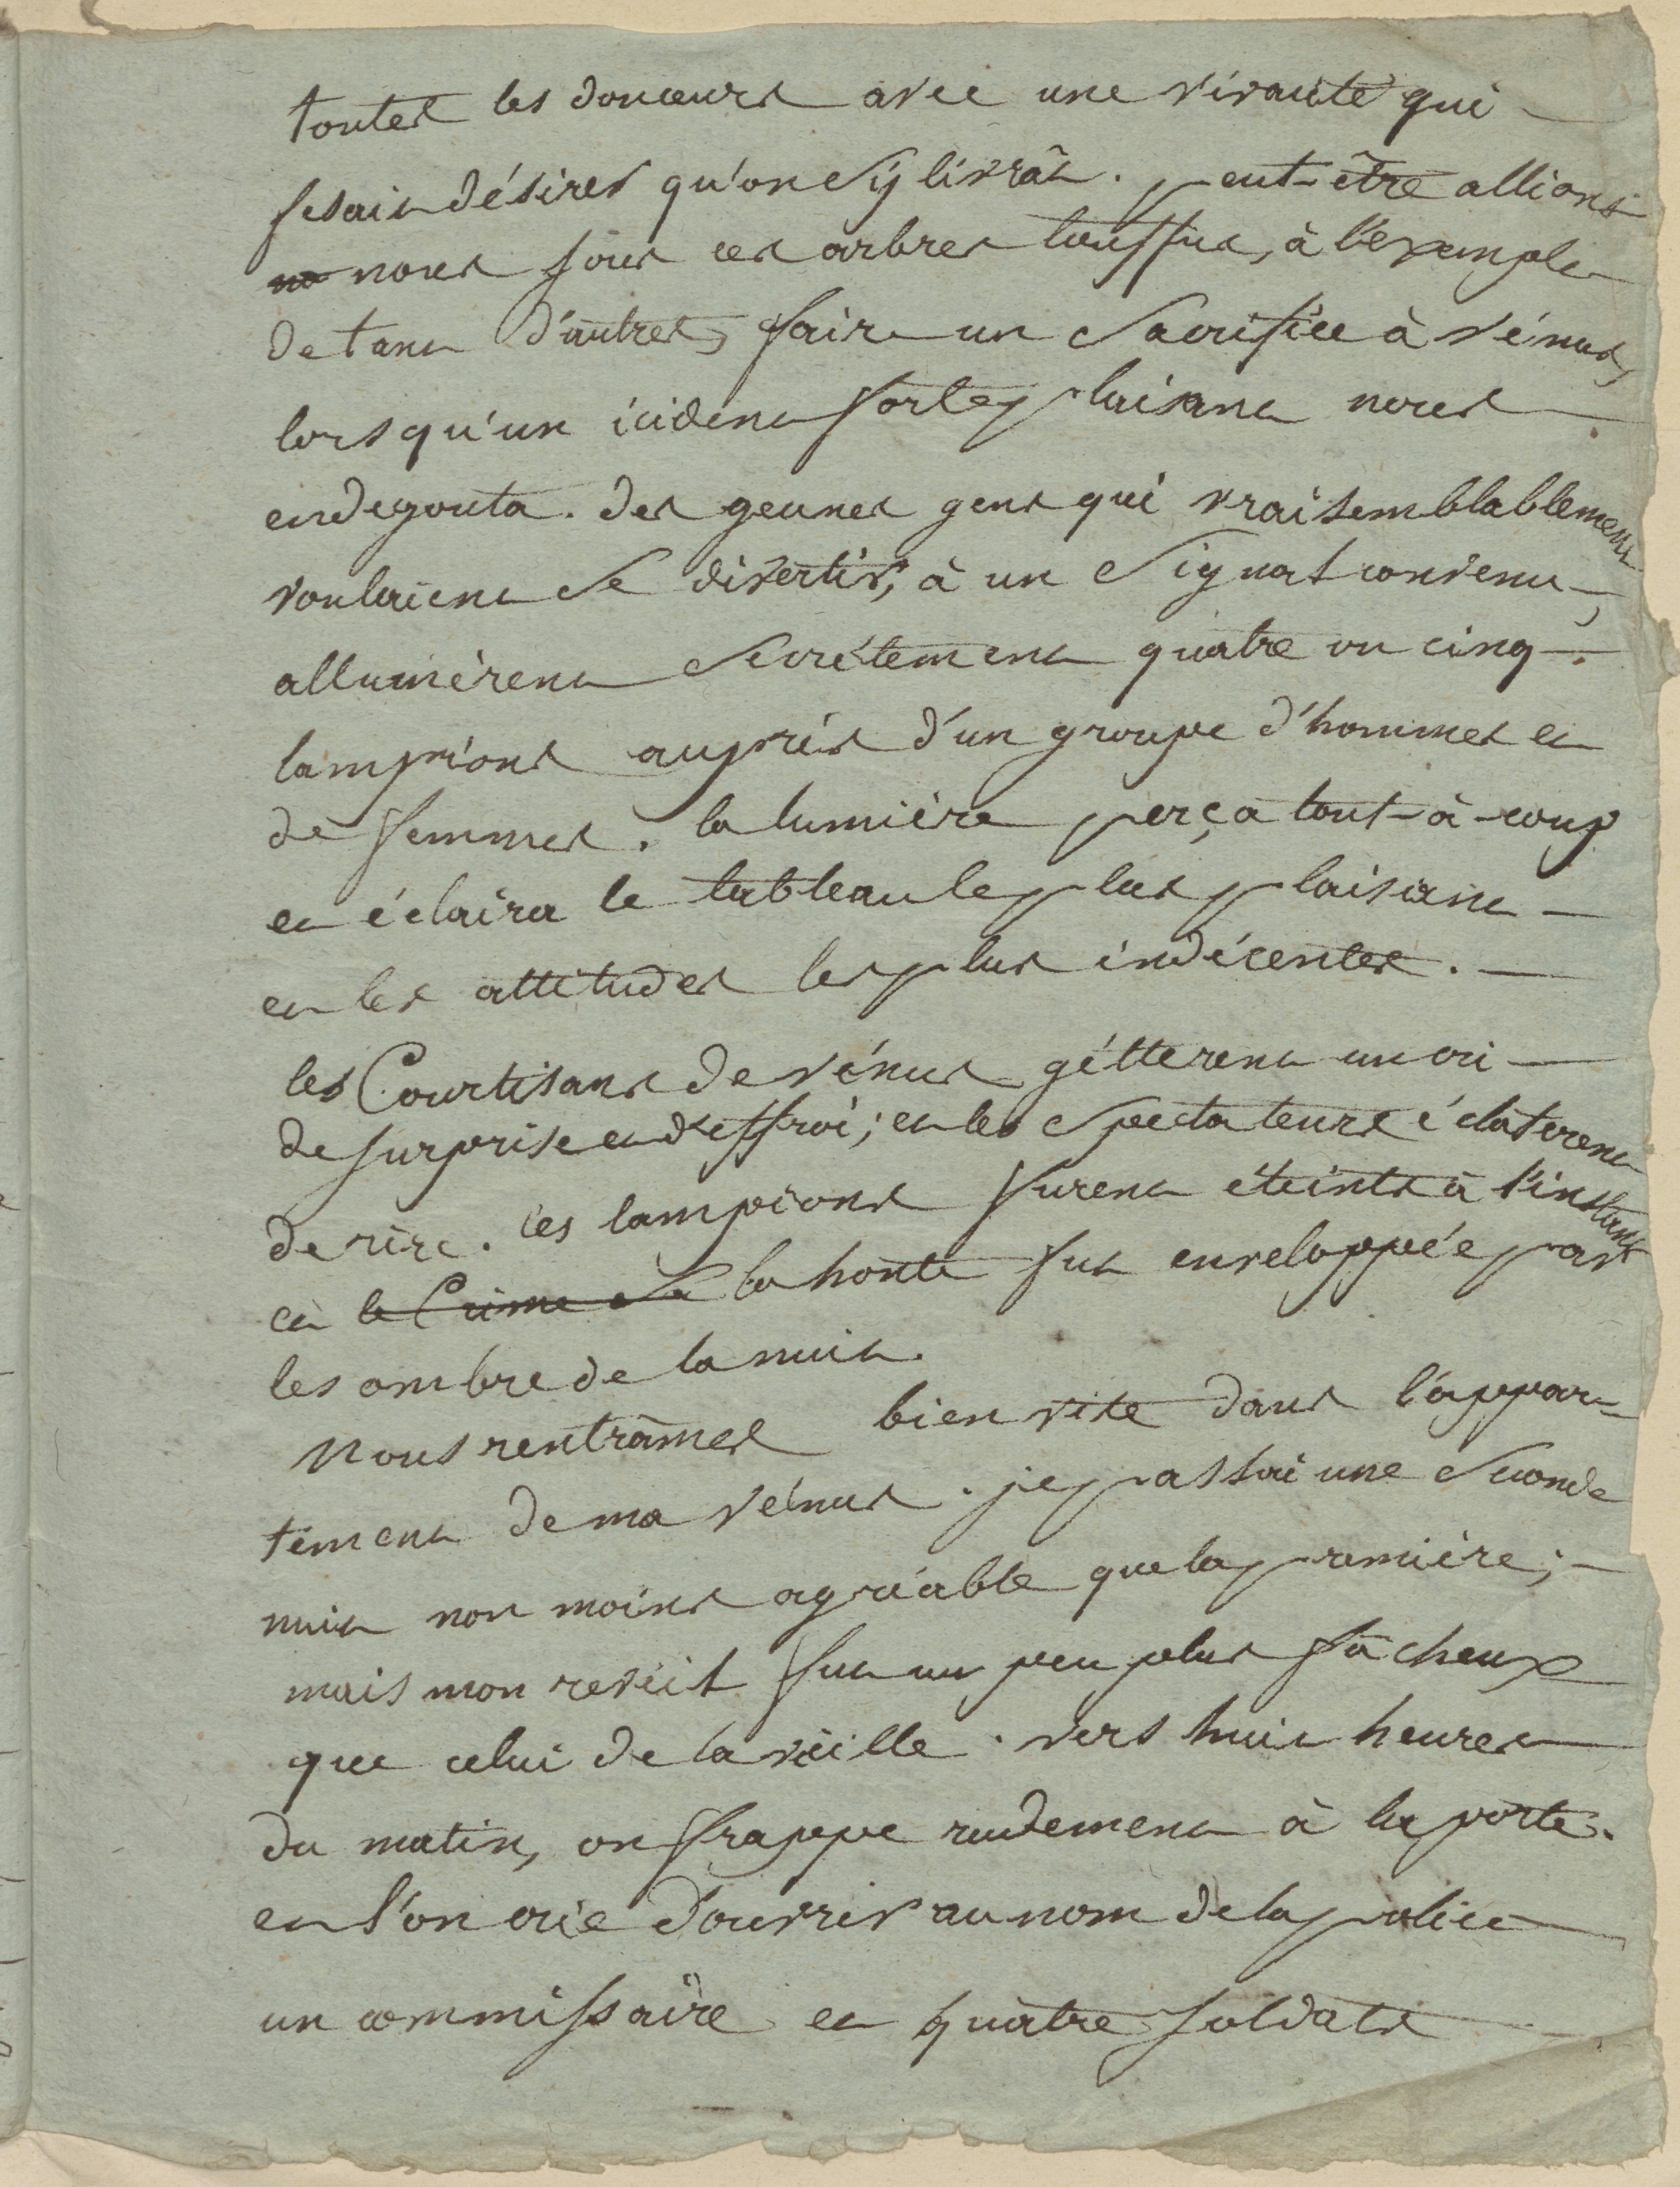 toutes les douceurs avec une vivacité qui
fesait désirer qu'on s'y livrât. peut-être allions
no nous sous ces arbres touffus, à l'exemple
de tant d'autres, faire un sacrifice à vénus,
lorsqu'un icident fort plaisant nous
en degouta. des geunes gens qui vraisemblablement
voulaient se divertir, à un signal convenu,
allumèrent secrétement quatre ou cinq
lampions auprès d'un groupe d'hommes et
de femmes. la lumière perça tout-à-coup
et éclaira le tableau le plus plaisant
et les attitudes les plus indécentes.
les Courtisans de vénus gétterent un cri
de surprise et d'effroi; et les spectateurs éclaterent
de rire. les lampions furent éteints à l'instant
et le Crime et la honte fut enveloppée par
les ombre de la nuit.
Nous rentrâmes bien vite dans l'appar=
tement de ma vénus. je passai une seconde
nuit non moins agréable que la premiére;
mais mon reveil fut un peu plus fâcheux
que celui de la veille. vers huit heures
du matin, on frappe rudement à la porte.
et l'on crie d'ouvrir au nom de la police
un commissaire et quatre soldats